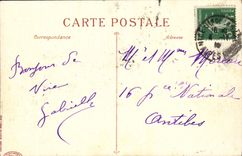 CARTE POSTALE
Correspondance
Adresse
Bonjour de
Gabrielle
M. et Mme
16 pce Nationale
Antibes